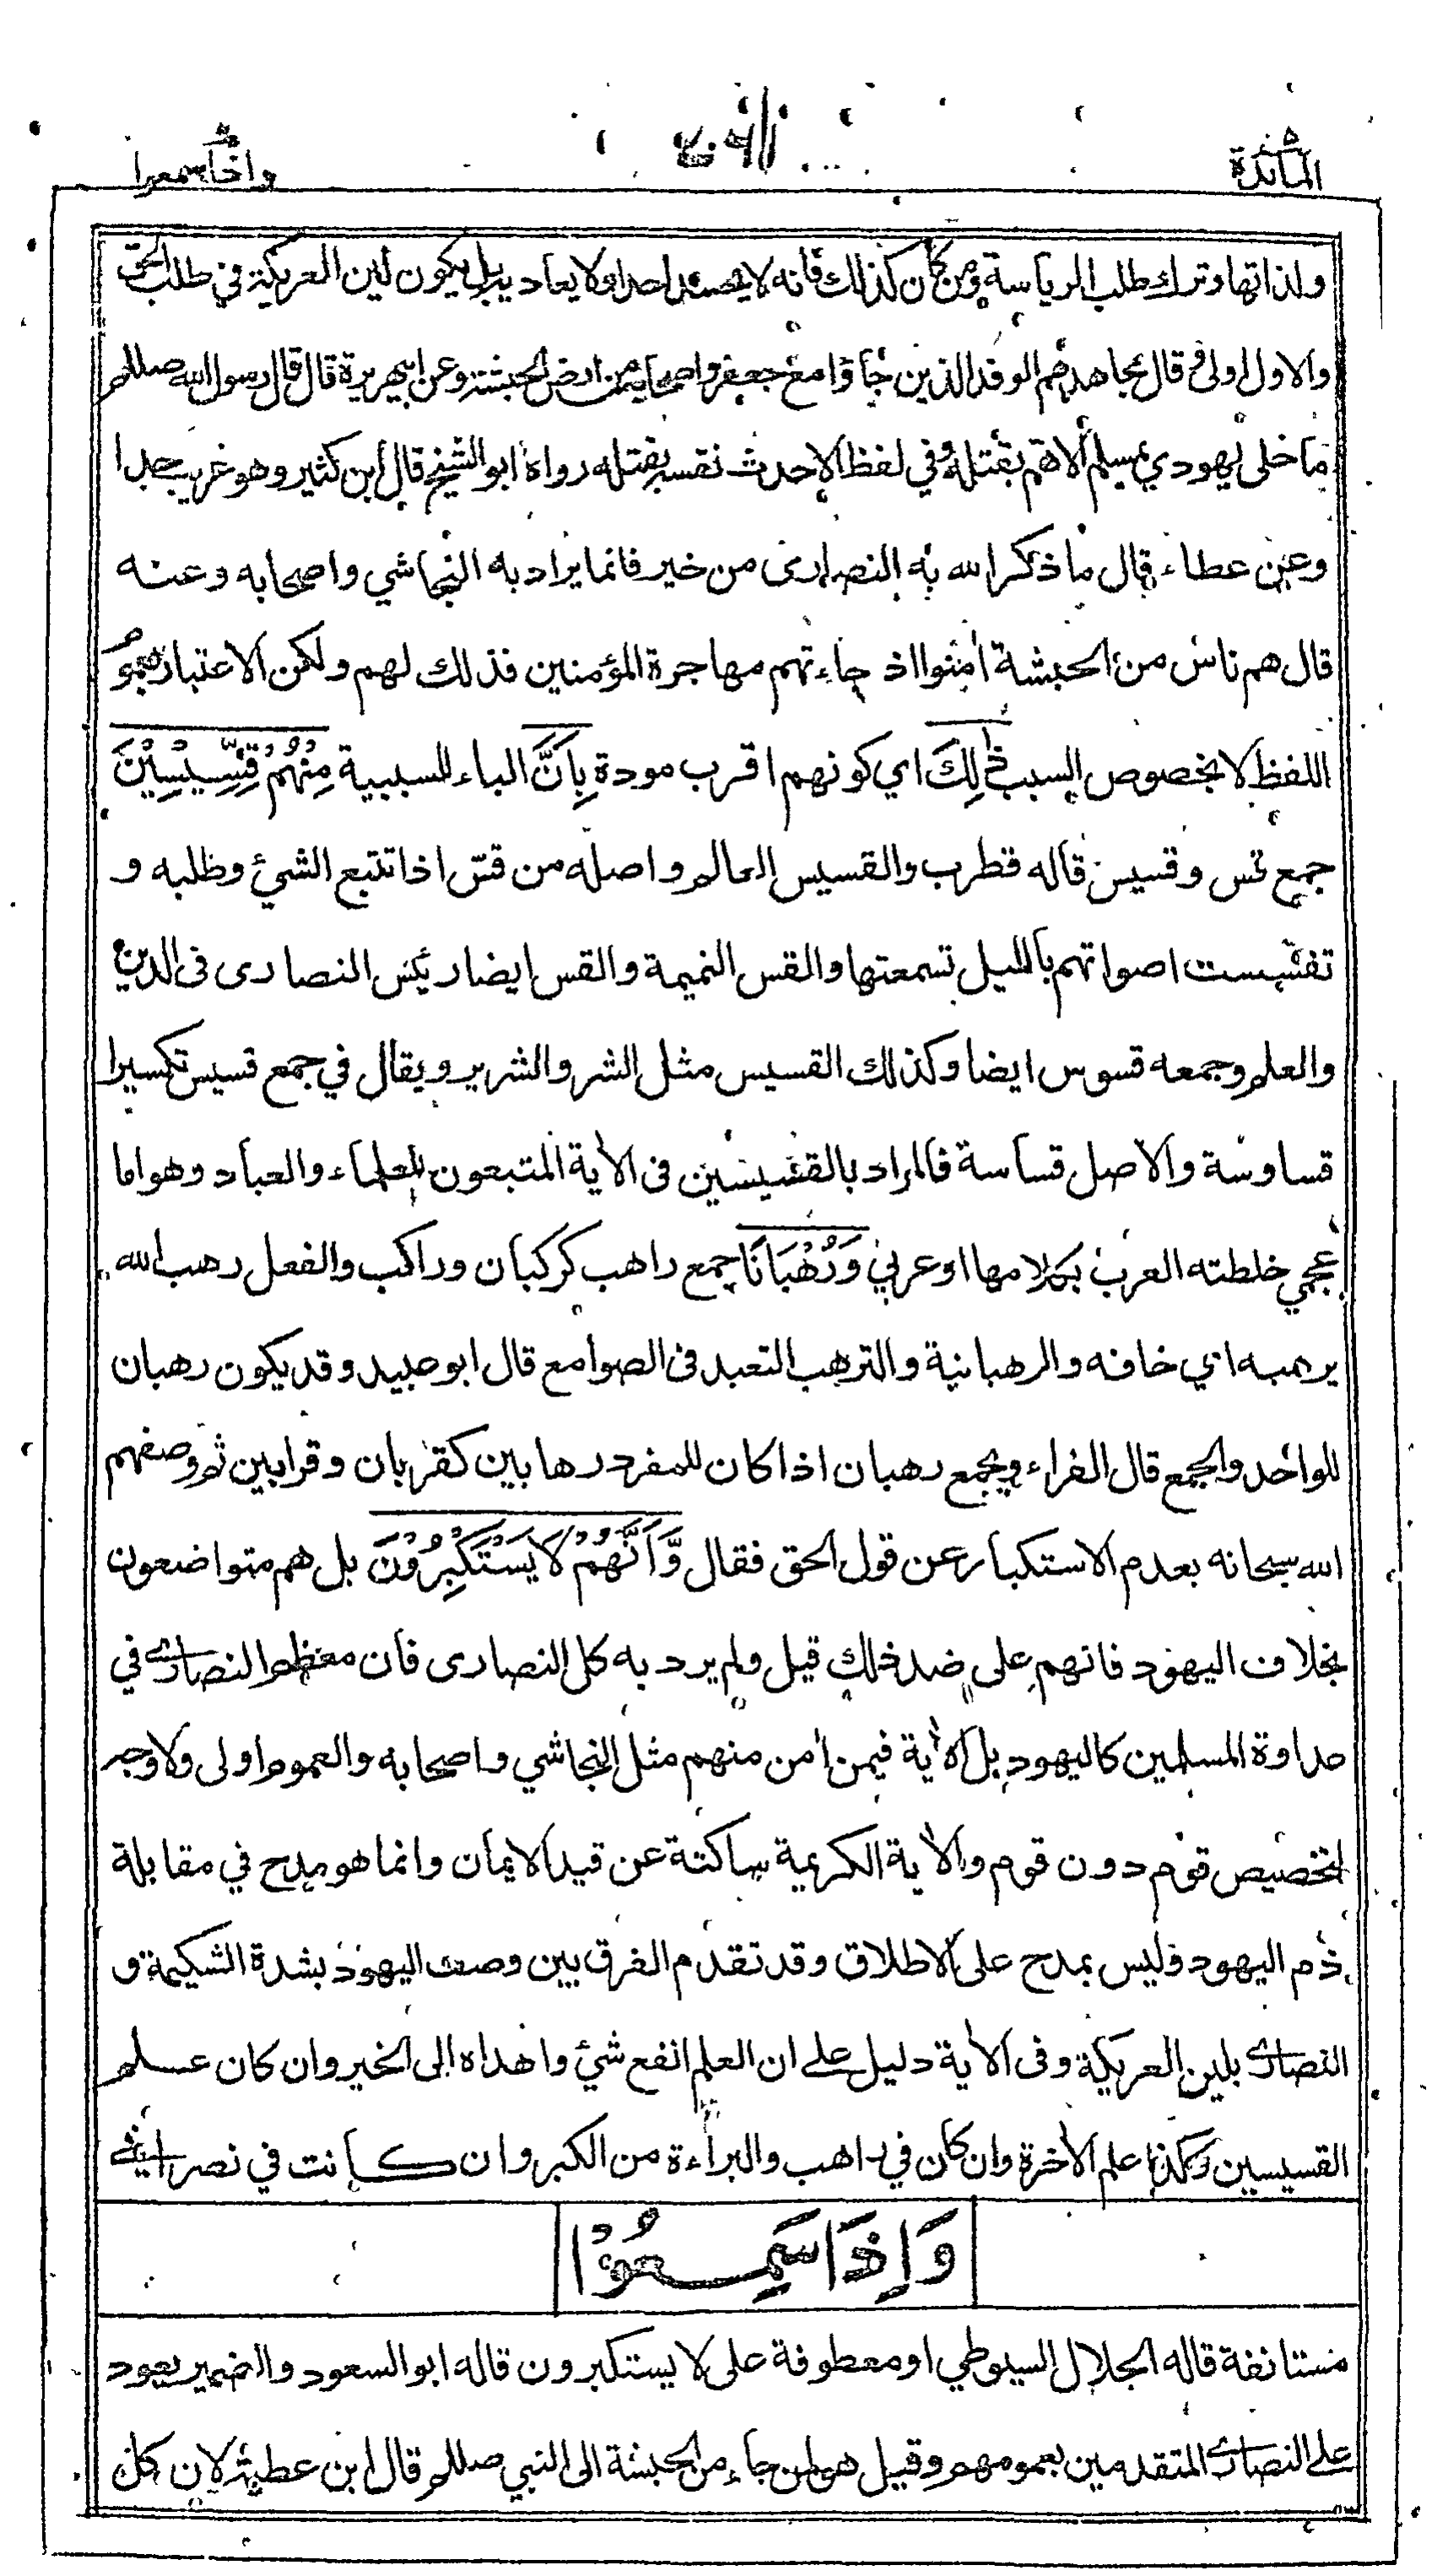 المائدة
واذا سمعوا
ولذاتها وترك طلب الرياسة ومن كان كذلك فانه لا يحسد احدا ولا يعاديه بل يكون لين العريكة في طلب الحق
والاول اولى قال مجاهد هم الوفد الذين جاؤا مع جعفر واصحابه من ارض الحبشة وعن ابي هريرة قال قال رسول الله صللم
ما خلى يهودي بمسلم الا هم بقتله وفي لفظ الا حدث نفسه بقتله رواه ابو الشيخ قال ابن كثير وهو غريب جدا
وعن عطاء قال ما ذكر الله به النصارى من خير فانما يراد به النجاشي واصحابه وعنه
قال هم ناس من الحبشة امنوا اذ جاءتهم مهاجرة المؤمنين فذلك لهم ولكن الاعتبار بعموم
اللفظ لا بخصوص السبب ذٰلِكَ اي كونهم اقرب مودة بِاَنَّ الباء للسببية مِنْهُمْ قِسِّيْسِيْنَ
جمع قس وقسيس قاله قطرب والقسيس العالم واصله من قس اذا تتبع الشيئ وطلبه و
تقسست اصواتهم بالليل تسمعتها والقس النميمة والقس ايضا رئيس النصارى فى الدين
والعلم وجمعه قسوس ايضا وكذلك القسيس مثل الشر والشرير ويقال في جمع قسيس تكسيرا
قساوسة والاصل قساسة فالمراد بالقسيسين فى الاية المتبعون للعلماء والعباد وهو اما
عجمي خلطته العرب بكلامها او عربي وَرُهْبَانًا جمع راهب كركبان وراكب والفعل رهب الله
يرهبه اي خافه والرهبانية والترهب التعبد فى الصوامع قال ابو عبيد وقد يكون رهبان
للواحد والجمع قال الفراء ويجمع رهبان اذا كان للمفرد رهابين كقربان وقرابين ثم وصفهم
الله سبحانه بعدم الاستكبار عن قول الحق فقال وَّاَنَّهُمْ لَا يَسْتَكْبِرُوْنَ بل هم متواضعون
بخلاف اليهود فانهم على ضد ذلك قيل ولم يرد به كل النصارى فان معظم النصارى في
عداوة المسلمين كاليهود بل الاية فيمن امن منهم مثل النجاشي واصحابه والعموم اولى ولا وجه
لتخصيص قوم دون قوم والاية الكريمة ساكتة عن قيد الايمان وانما هو مدح في مقابلة
ذم اليهود وليس بمدح على الاطلاق وقد تقدم الفرق بين وصف اليهود بشدة الشكيمة و
النصارى بلين العريكة وفى الاية دليل على ان العلم انفع شيئ واهداه الى الخير وان كان علم
القسيسين وكذا علم الاخرة وان كان في راهب والبراءة من الكبر وان كانت في نصراني
وَاِذَا سَمِعُوْا
مستانفة قاله الجلال السيوطي او معطوفة على لا يستكبرون قاله ابو السعود والضمير يعود
على النصارى المتقدمين بعمومهم وقيل هو لمن جاء من الحبشة الى النبي صللم قال ابن عطية لان كل